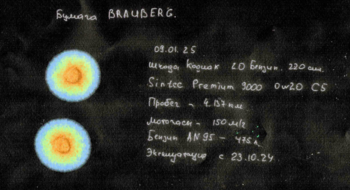 Бумага BRAUBERG.
09.01.25
Шкода Кодиак 2.0 Бензин. 220 сил.
Sintec Premium 9000 0w20 C5
Пробег - 4.137 км
Моточасы - 150 м/ч
Бензин АИ95 - 475 л
Эксплуатация с 23.10.24.